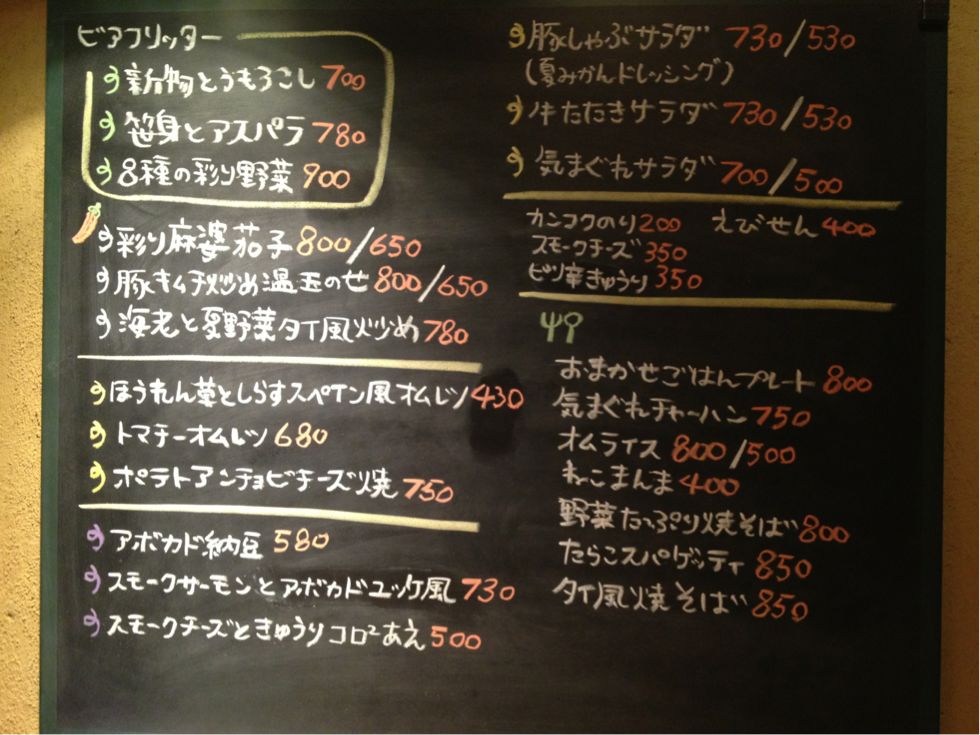 ビアフリッター
新物とうもろこし 700
笹身とアスパラ 780
8種の彩り野菜 900
彩り麻婆茄子 800/650
豚キムチ炒め温玉のせ 800/650
海老と夏野菜タイ風炒め 780
ほうれん草としらすスペイン風オムレツ 430
トマチーオムレツ 680
ポテトアンチョビチーズ焼 750
アボカド納豆 580
スモークサーモンとアボカドユッケ風 730
スモークチーズときゅうりコロ²あえ 500
豚しゃぶサラダ 730/530
(夏みかんドレッシング)
牛たたきサラダ 730/530
気まぐれサラダ 700/500
カンコクのり 200 えびせん 400
スモークチーズ 350
ピリ辛きゅうり 350
おまかせごはんプレート 800
気まぐれチャーハン 750
オムライス 800/500
ねこまんま 400
野菜たっぷり焼そば 800
たらこスパゲッティ 850
タイ風焼そば 850